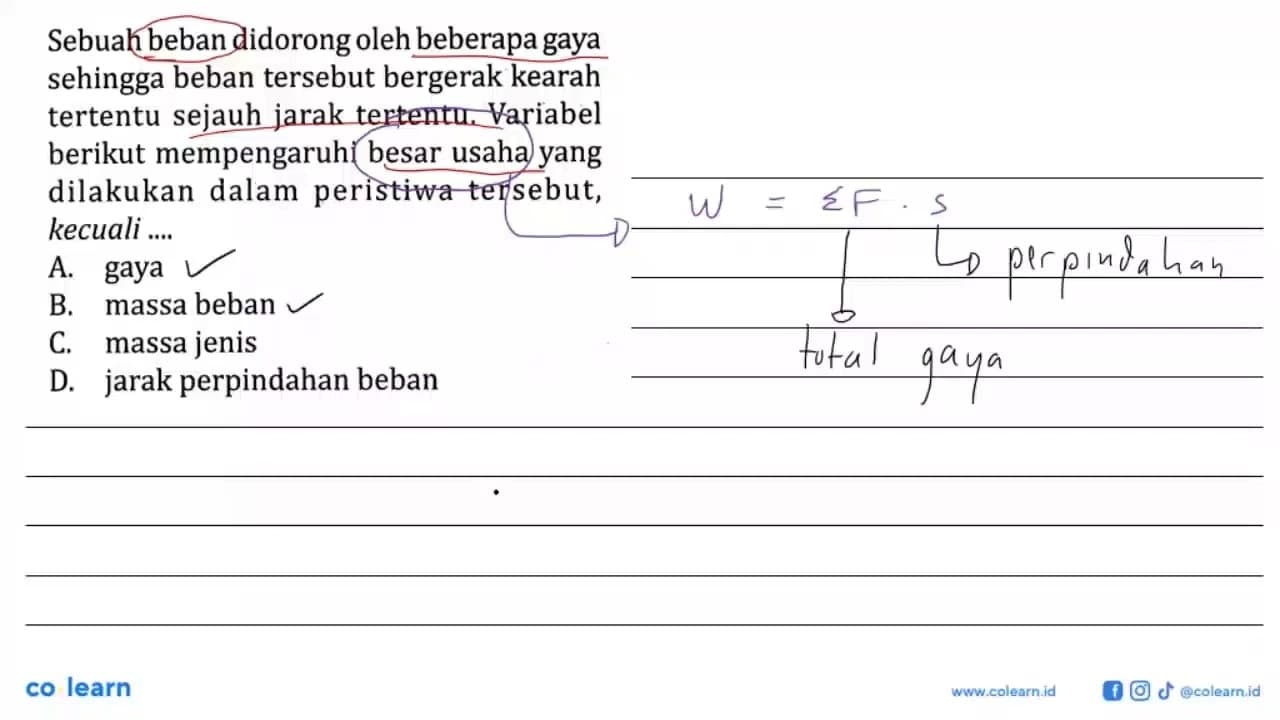 Sebuah beban didorong oleh beberapa gaya
sehingga beban tersebut bergerak kearah
tertentu sejauh jarak tertentu. Variabel
berikut mempengaruhi besar usaha yang
dilakukan dalam peristiwa tersebut,
kecuali ....
A. gaya
B. massa beban
C. massa jenis
D. jarak perpindahan beban
W = ΣF . s
perpindahan
total gaya
co learn
www.colearn.id
@colearn.id